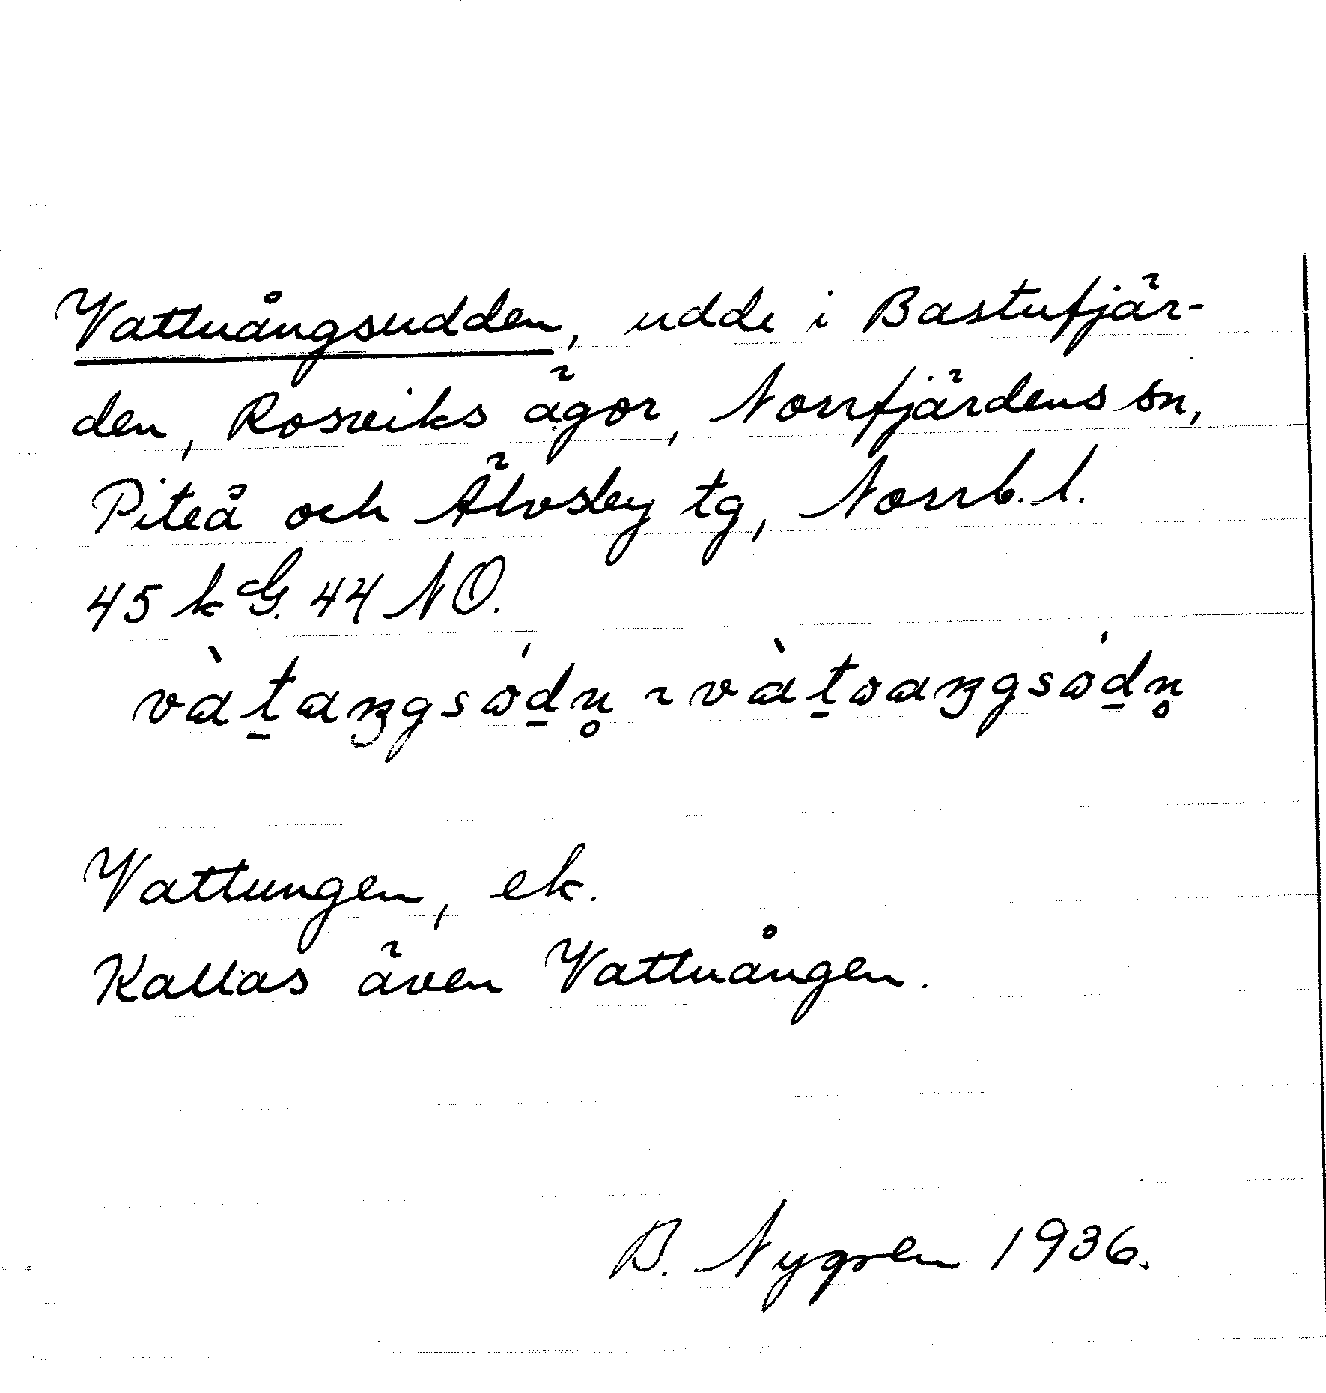 Vattuångsudden, udde i Bastufjär-
den, Rosviks ägor, Norrfjärdens sn,
Piteå och Älvsby tg, Norrb. l.
45 k G. 44 NO.
vàt̠aŋgsód̠n̥ ~ vàt̠oaŋgsód̠n̥
Vattungen, ek.
Kallas även Vattuången.
B. Nygren 1936.